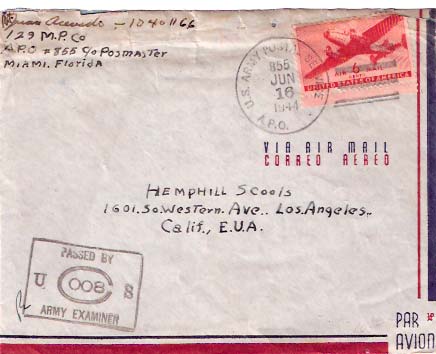 Acevedo - 10401166
129 M.P. Co
A.P.O #855 90 Posmaster
Miami. Florida
U.S. ARMY POSTAL SERVICE
855
JUN
16
1944
A.P.O.
AIR 6¢ MAIL
UNITED STATES OF AMERICA
VIA AIR MAIL
CORREO AEREO
HEMPHILL Scools
1601. So. Western. Ave.. Los. Angeles,.
Calif., E.U.A.
PASSED BY
U. 008 S
ARMY EXAMINER
PAR
AVION